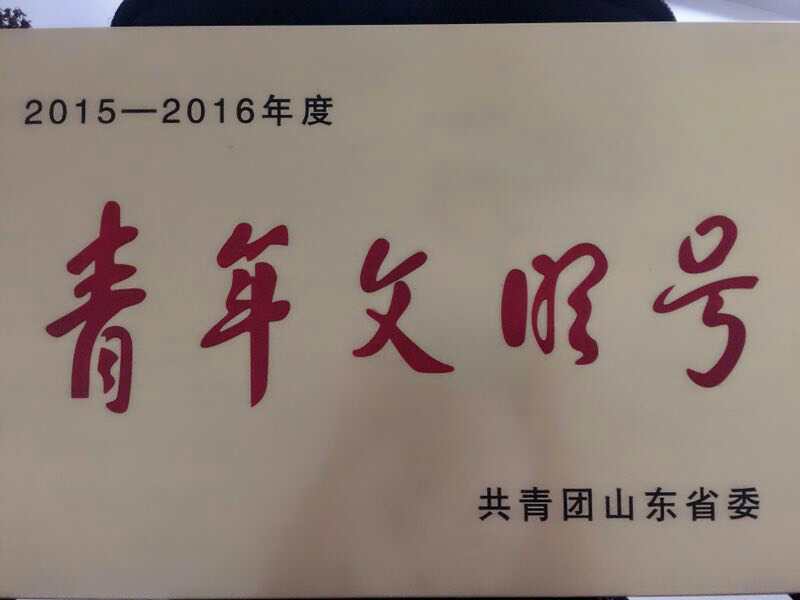 2015—2016年度
青年文明号
共青团山东省委